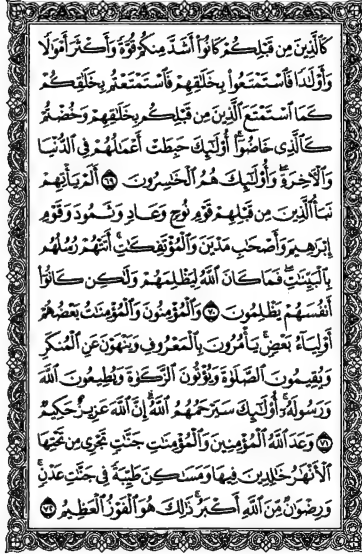 كَٱلَّذِينَ مِن قَبْلِكُمْ كَانُوٓا۟ أَشَدَّ مِنكُمْ قُوَّةً وَأَكْثَرَ أَمْوَٰلًا
وَأَوْلَٰدًا فَٱسْتَمْتَعُوا۟ بِخَلَٰقِهِمْ فَٱسْتَمْتَعْتُم بِخَلَٰقِكُمْ
كَمَا ٱسْتَمْتَعَ ٱلَّذِينَ مِن قَبْلِكُم بِخَلَٰقِهِمْ وَخُضْتُمْ
كَٱلَّذِى خَاضُوٓا۟ أُو۟لَٰٓئِكَ حَبِطَتْ أَعْمَٰلُهُمْ فِى ٱلدُّنْيَا
وَٱلْءَاخِرَةِ وَأُو۟لَٰٓئِكَ هُمُ ٱلْخَٰسِرُونَ ٦٩ أَلَمْ يَأْتِهِمْ
نَبَأُ ٱلَّذِينَ مِن قَبْلِهِمْ قَوْمِ نُوحٍ وَعَادٍ وَثَمُودَ وَقَوْمِ
إِبْرَٰهِيمَ وَأَصْحَٰبِ مَدْيَنَ وَٱلْمُؤْتَفِكَٰتِ أَتَتْهُمْ رُسُلُهُم
بِٱلْبَيِّنَٰتِ فَمَا كَانَ ٱللَّهُ لِيَظْلِمَهُمْ وَلَٰكِن كَانُوٓا۟
أَنفُسَهُمْ يَظْلِمُونَ ٧٠ وَٱلْمُؤْمِنُونَ وَٱلْمُؤْمِنَٰتُ بَعْضُهُمْ
أَوْلِيَآءُ بَعْضٍ يَأْمُرُونَ بِٱلْمَعْرُوفِ وَيَنْهَوْنَ عَنِ ٱلْمُنكَرِ
وَيُقِيمُونَ ٱلصَّلَوٰةَ وَيُؤْتُونَ ٱلزَّكَوٰةَ وَيُطِيعُونَ ٱللَّهَ
وَرَسُولَهُۥٓ أُو۟لَٰٓئِكَ سَيَرْحَمُهُمُ ٱللَّهُ إِنَّ ٱللَّهَ عَزِيزٌ حَكِيمٌ
٧١ وَعَدَ ٱللَّهُ ٱلْمُؤْمِنِينَ وَٱلْمُؤْمِنَٰتِ جَنَّٰتٍ تَجْرِى مِن تَحْتِهَا
ٱلْأَنْهَٰرُ خَٰلِدِينَ فِيهَا وَمَسَٰكِنَ طَيِّبَةً فِى جَنَّٰتِ عَدْنٍ
وَرِضْوَٰنٌ مِّنَ ٱللَّهِ أَكْبَرُ ذَٰلِكَ هُوَ ٱلْفَوْزُ ٱلْعَظِيمُ ٧٢